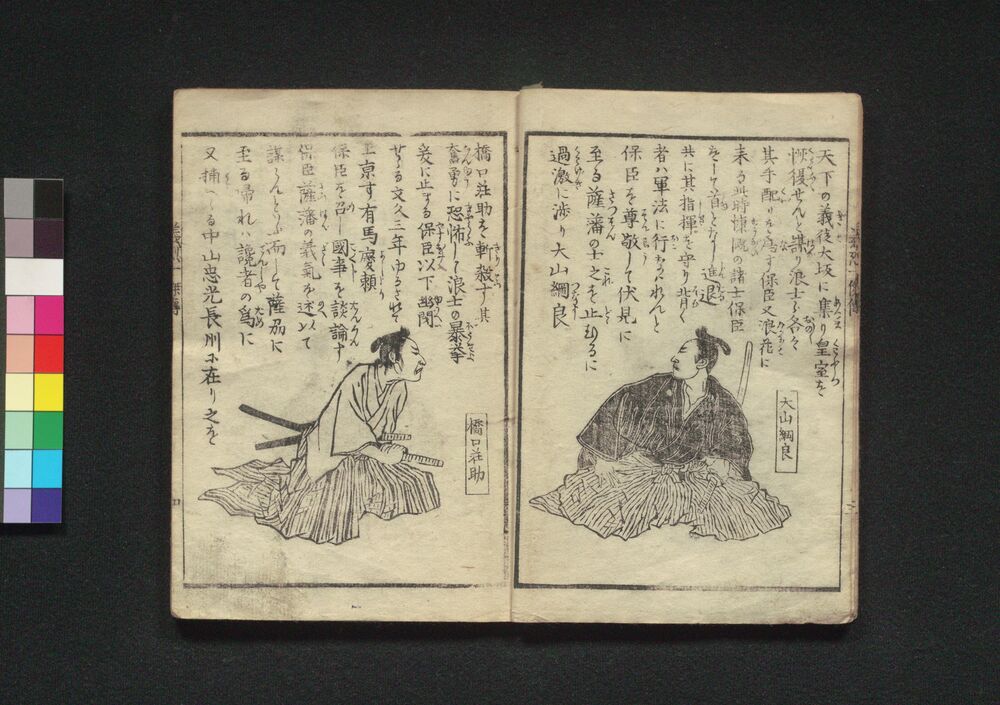 天下の義徒大坂に集り皇室を
恢復せんと謀り浪士ら各々
其手配りを為す保臣又浪花に
来る此時慷慨の諸士保臣
をして首となし進退
共に其指揮を守り
者ハ軍法に行ハれんと
保臣を尊敬して伏見に
至る薩藩の士之を止むるに
過激に渉り大山綱良
大山綱良
橋口荘助を斬殺す其
奮勇に恐怖して浪士の暴挙
爰に止まる保臣以下幽閉
せらる文久三年ゆるされて
上京す有馬慶頼
保臣を召し國事を談論す
保臣薩藩の義氣を述べて
謀らんとす而して薩州に
至る帰れハ讒者の為に
又捕ハる中山忠光長州に在り之を
橋口荘助